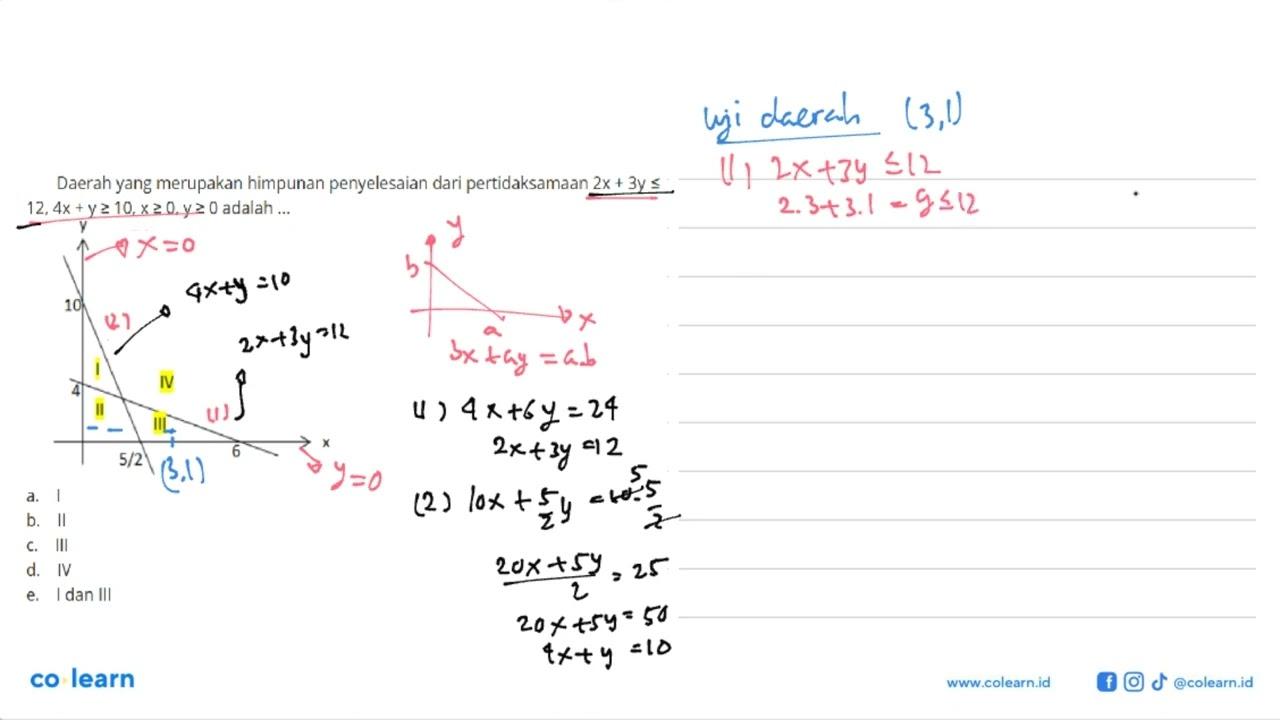 Daerah yang merupakan himpunan penyelesaian dari pertidaksamaan 2x + 3y ≤
12, 4x + y ≥ 10, x ≥ 0, y ≥ 0 adalah ...
y
x=0
10
(2)
4x+y=10
2x+3y=12
I
IV
4
II
III
(1)
x
5/2
6
(3,1)
y=0
a. I
b. II
c. III
d. IV
e. I dan III
y
b
a
x
bx+ay=a.b
(1) 4x+6y=24
2x+3y=12
(2) 10x+5/2y=10.5/2
5
20x+5y/2=25
20x+5y=50
4x+y=10
Uji daerah (3,1)
(1) 2x+3y≤12
2.3+3.1=9≤12
co learn
www.colearn.id
@colearn.id